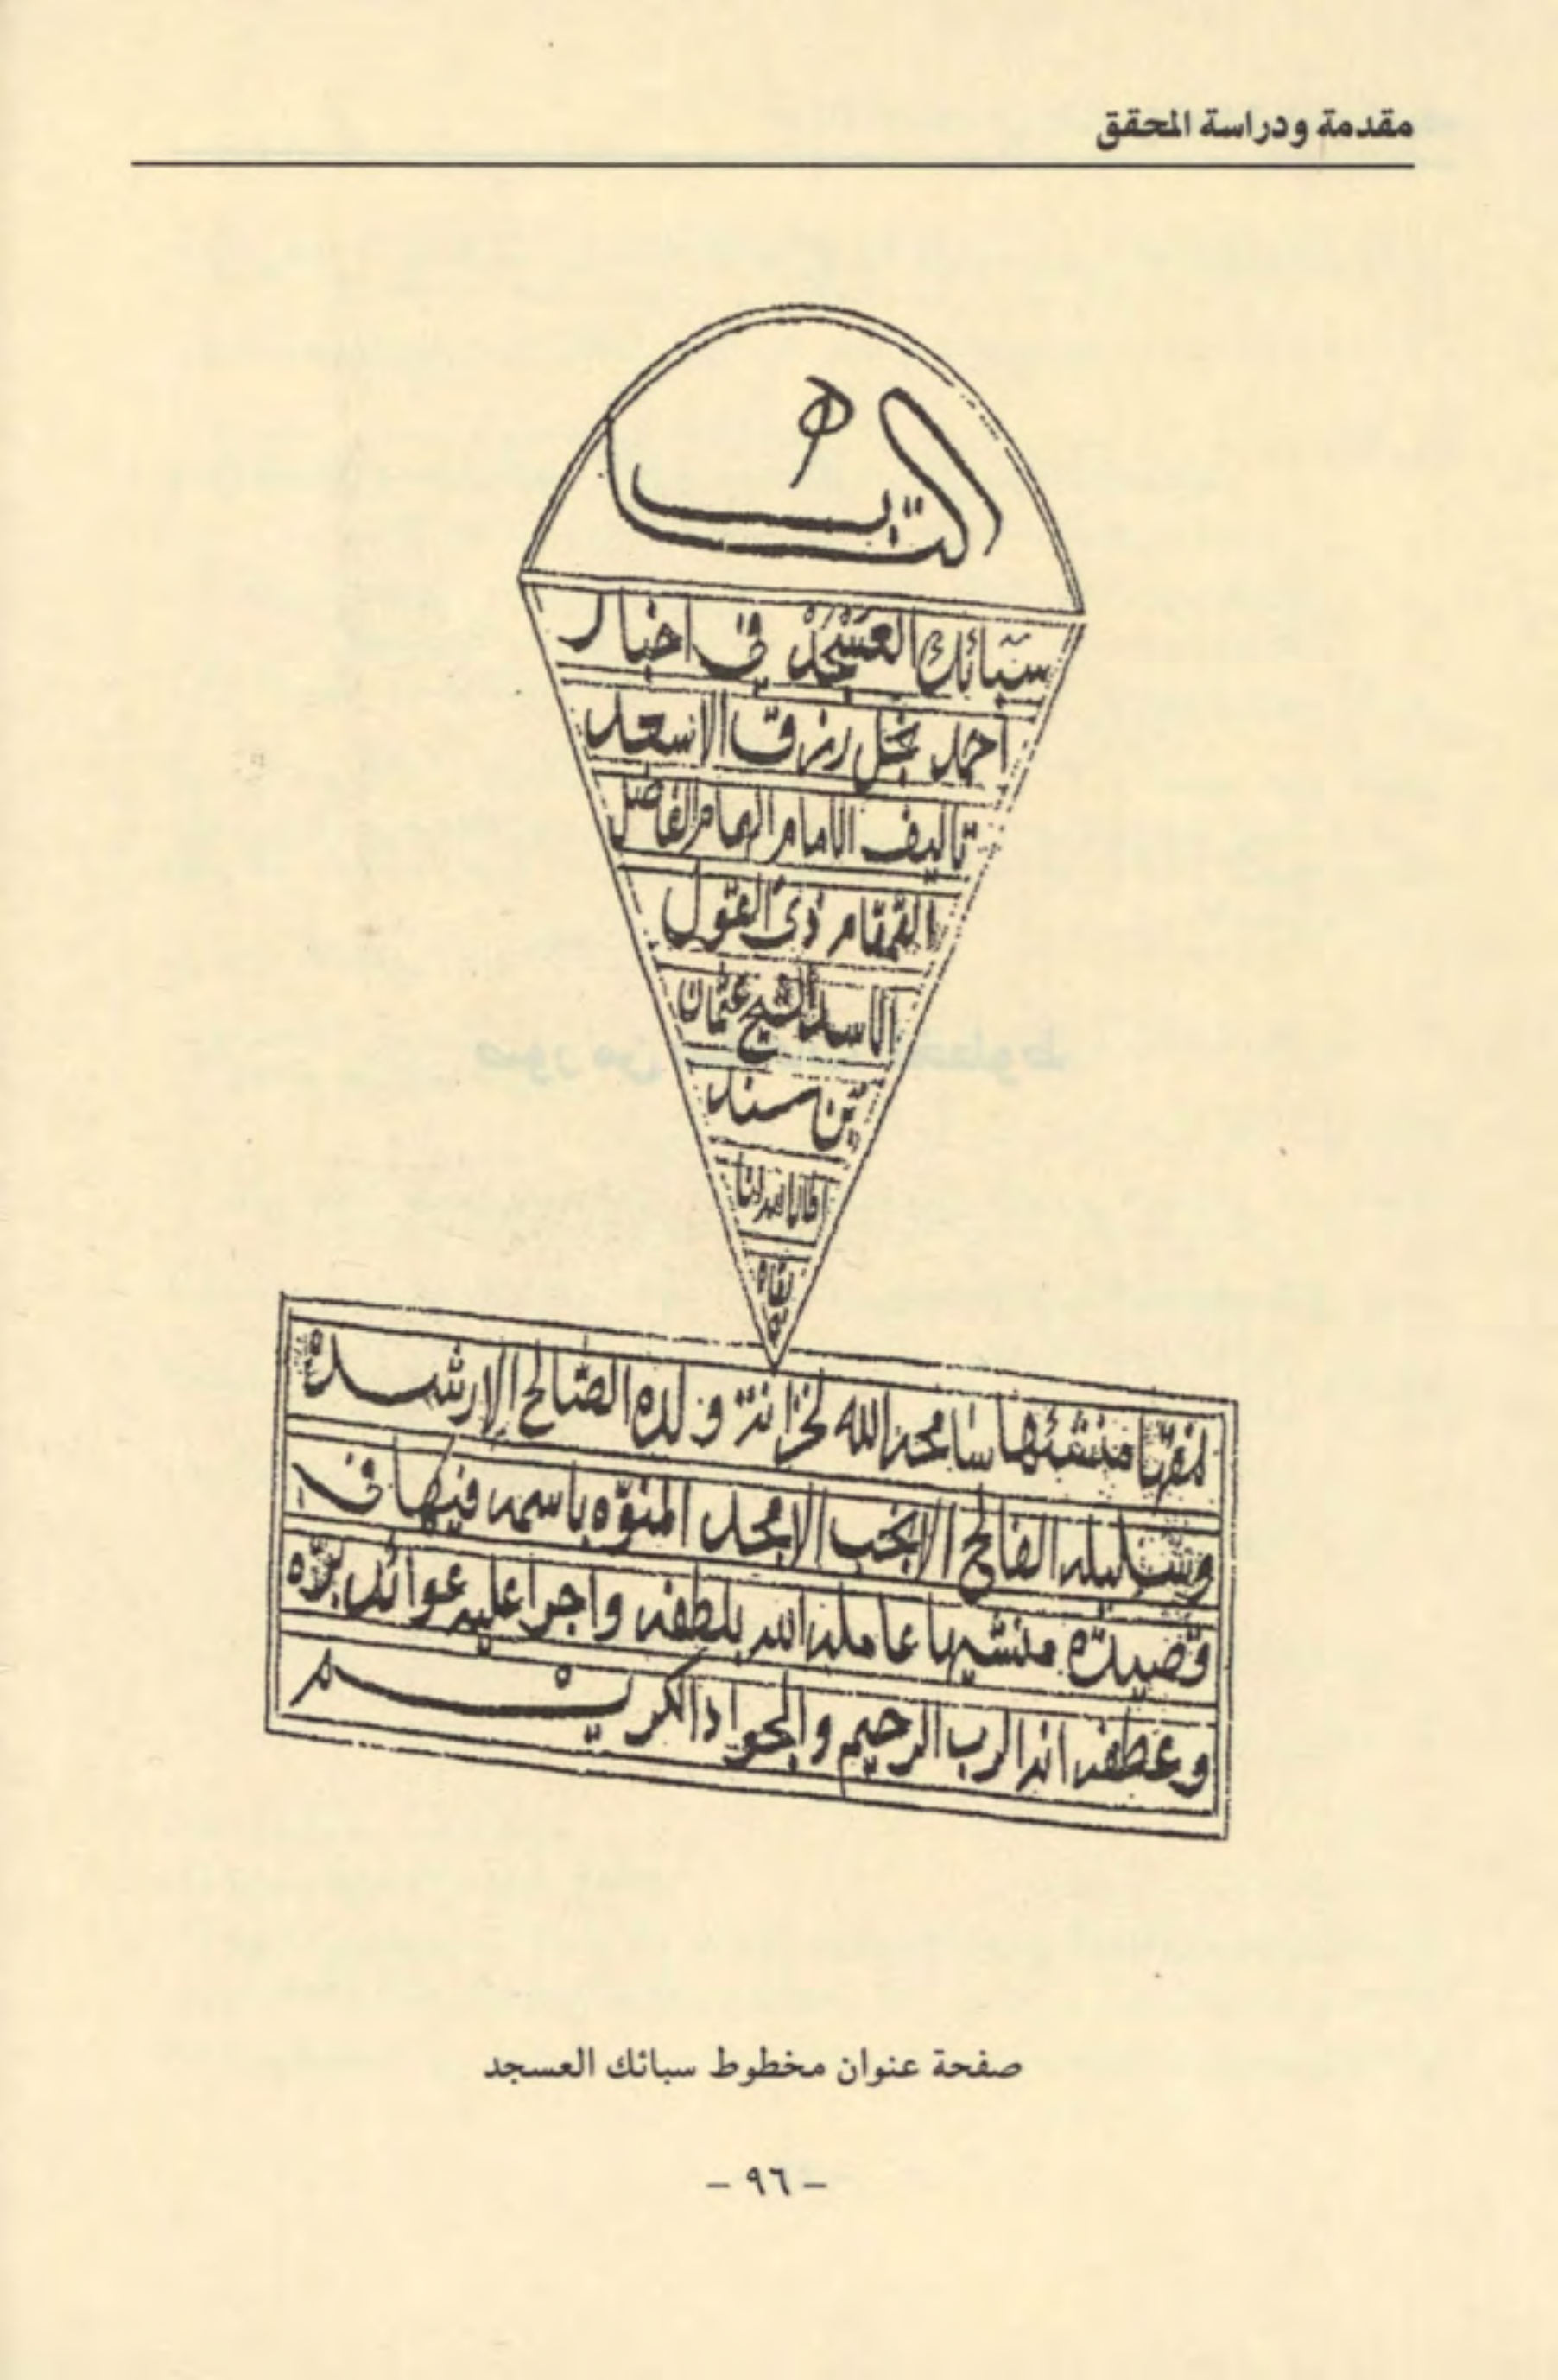 مقدمة ودراسة المحقق
كتاب
سبائك العسجد في اخبار
احمد نجل رزق الاسعد
تاليف الامام الهمام الفاضل
القمقام ذي القول
الاسد الشيخ عثمان
بن سند
الله لنا
بقاه
منشئها سامحه الله لخزانة ولده الصالح الارشد
وسليله الفالح الانجب الامجد المنوّه باسمه فيها في
قصيدة منشيها عامله الله بلطفه واجرا عليه عوائد برّه
وعطفه انه الرب الرحيم والجواد الكريم
صفحة عنوان مخطوط سبائك العسجد
– ٩٦ –